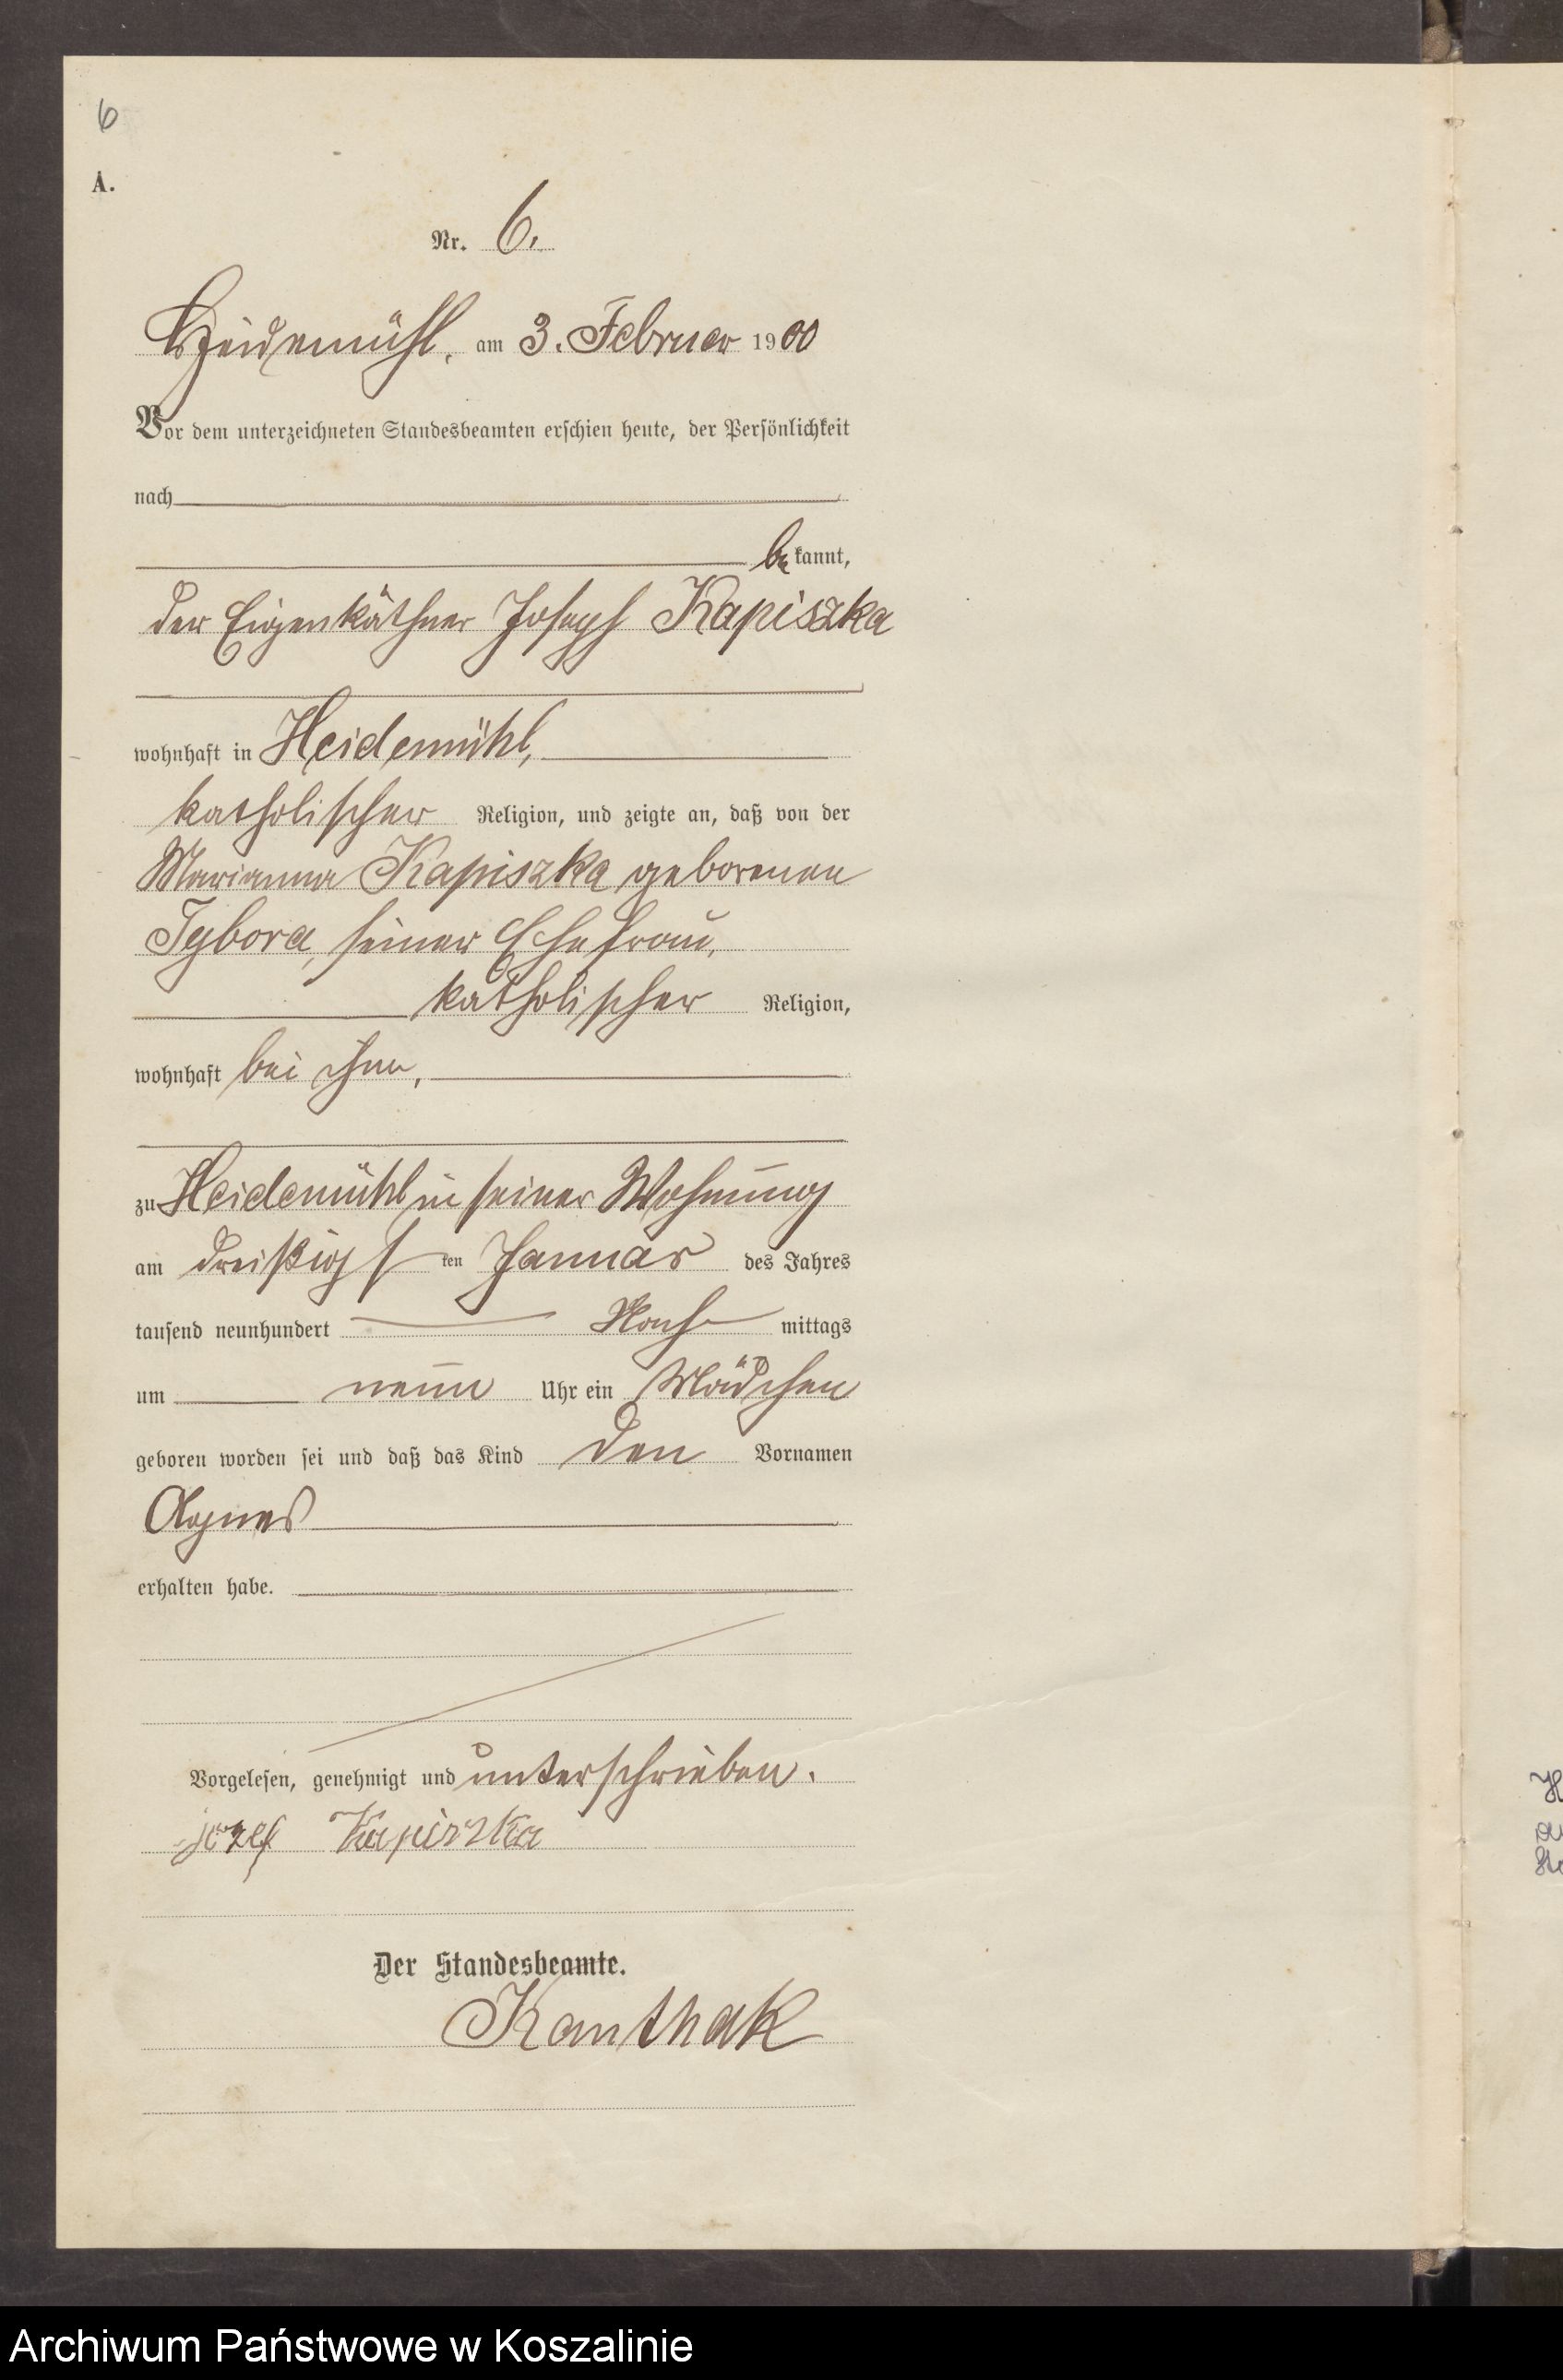 6
A.
Nr. 6.
Heidemühl, am 3. Februar 1900
Vor dem unterzeichneten Standesbeamten erschien heute, der Persönlichkeit
nach
bekannt,
der Eigenkäthner Joseph Kapiszka
wohnhaft in Heidemühl,
katholischer Religion, und zeigte an, daß von der
Marianna Kapiszka geborenen
Tybora, seiner Ehefrau,
katholischer Religion,
wohnhaft bei ihm,
zu Heidemühl in seiner Wohnung
am dreißigsten Januar des Jahres
tausend neunhundert Nachmittags
um neun Uhr ein Mädchen
geboren worden sei und daß das Kind den Vornamen
Agnes
erhalten habe.
Vorgelesen, genehmigt und unterschrieben.
jozef Kapiszka
Der Standesbeamte.
Kanthak
Archiwum Państwowe w Koszalinie